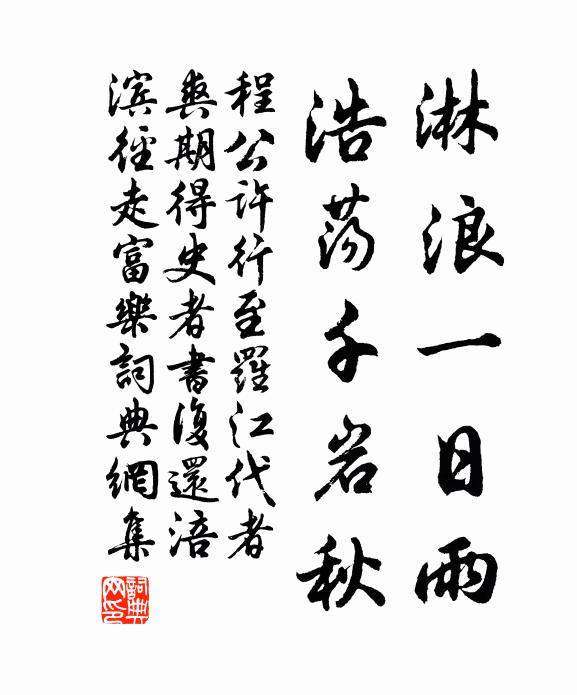 淋浪一日雨
浩荡千岩秋
程公許行至羅江代者
爽期得史者書復還涪
滨徑走富樂詞典網集
詞典
网印